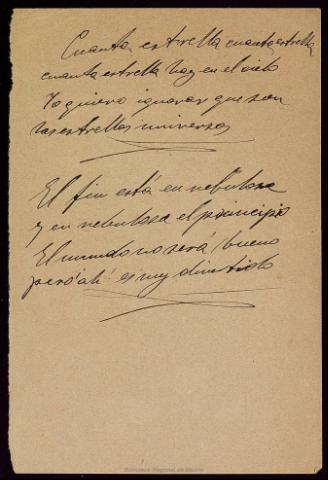 Cuanta estrella cuanta estrella
cuanta estrella hay en el cielo
Yo quiero ignorar que son
las estrellas universos
El fin está en nebulosa
y en nebulosa el principio
El mundo no será bueno
pero ah! es muy divertido
Biblioteca Regional de Madrid